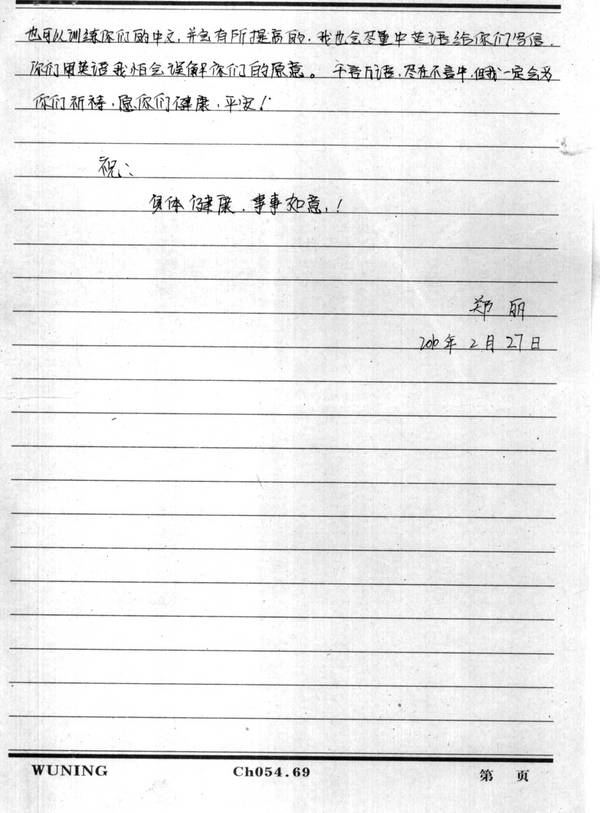 也可以训练你们的中文,并会有所提高的,我也会尽量中英语给你们写信,
你们用英语我怕会误解你们的原意。千言万语,尽在不言中,但我一定会为
你们祈祷,愿你们健康,平安!
祝:
身体健康,事事如意!
郑丽
年2月27日
WUNING Ch054.69 第 页